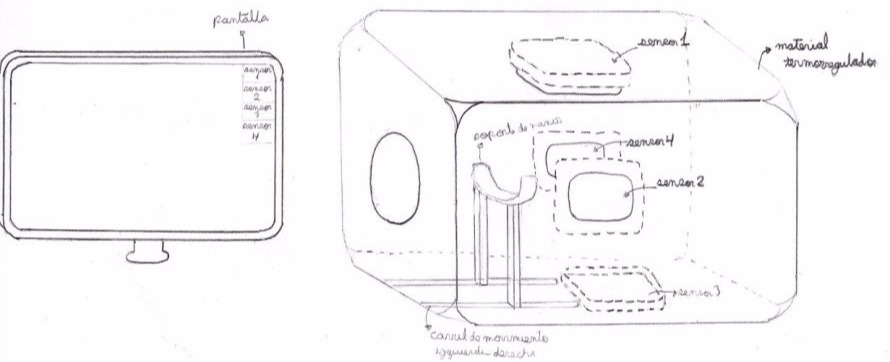 pantalla
sensor
1
sensor
2
sensor
3
sensor
4
sensor 1
material
termorregulador
soporte de mano
sensor 4
sensor 2
sensor 3
carril de movimiento
izquierda derecha